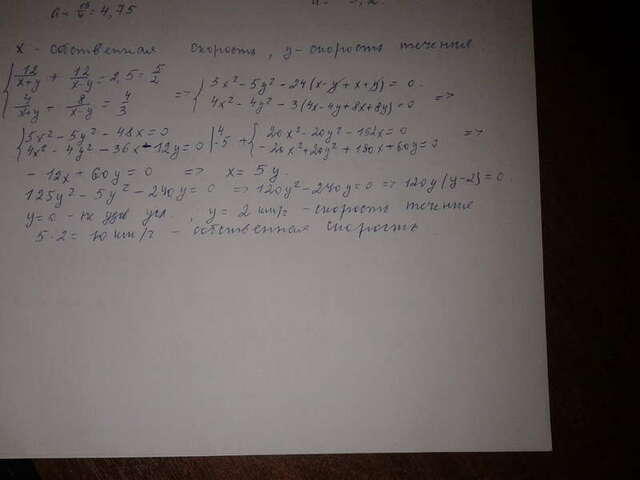 a = 19/4 = 4,75
x - собственная скорость, y - скорость течения
{ 12/(x+y) + 12/(x-y) = 2,5 = 5/2 => { 5x² - 5y² - 24(x-y+x+y) = 0.
{ 4/(x+y) + 8/(x-y) = 4/3 { 4x² - 4y² - 3(4x-4y+8x+8y) = 0 =>
{ 5x² - 5y² - 48x = 0 |4 + { 20x² - 20y² - 192x = 0 =>
{ 4x² - 4y² - 36x - 12y = 0 |-5 { -20x² + 20y² + 180x + 60y = 0
- 12x + 60y = 0 => x = 5y.
125y² - 5y² - 240y = 0 => 120y² - 240y = 0 => 120y(y-2) = 0.
y = 0 - не удов усл., y = 2 км/ч - скорость течения
5·2 = 10 км/ч - собственная скорость.